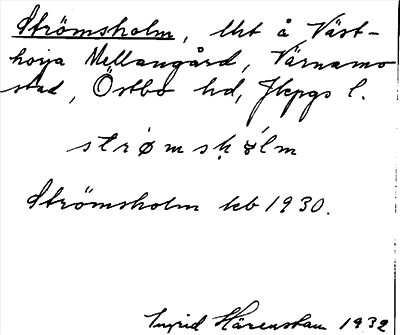 Strömsholm, lht å Väst-
horja Mellangård, Värnamo
stad, Östbo hd, Jkpgs l.
strømshólm
Strömsholm kb 1930.
Ingrid Härenstam 1932